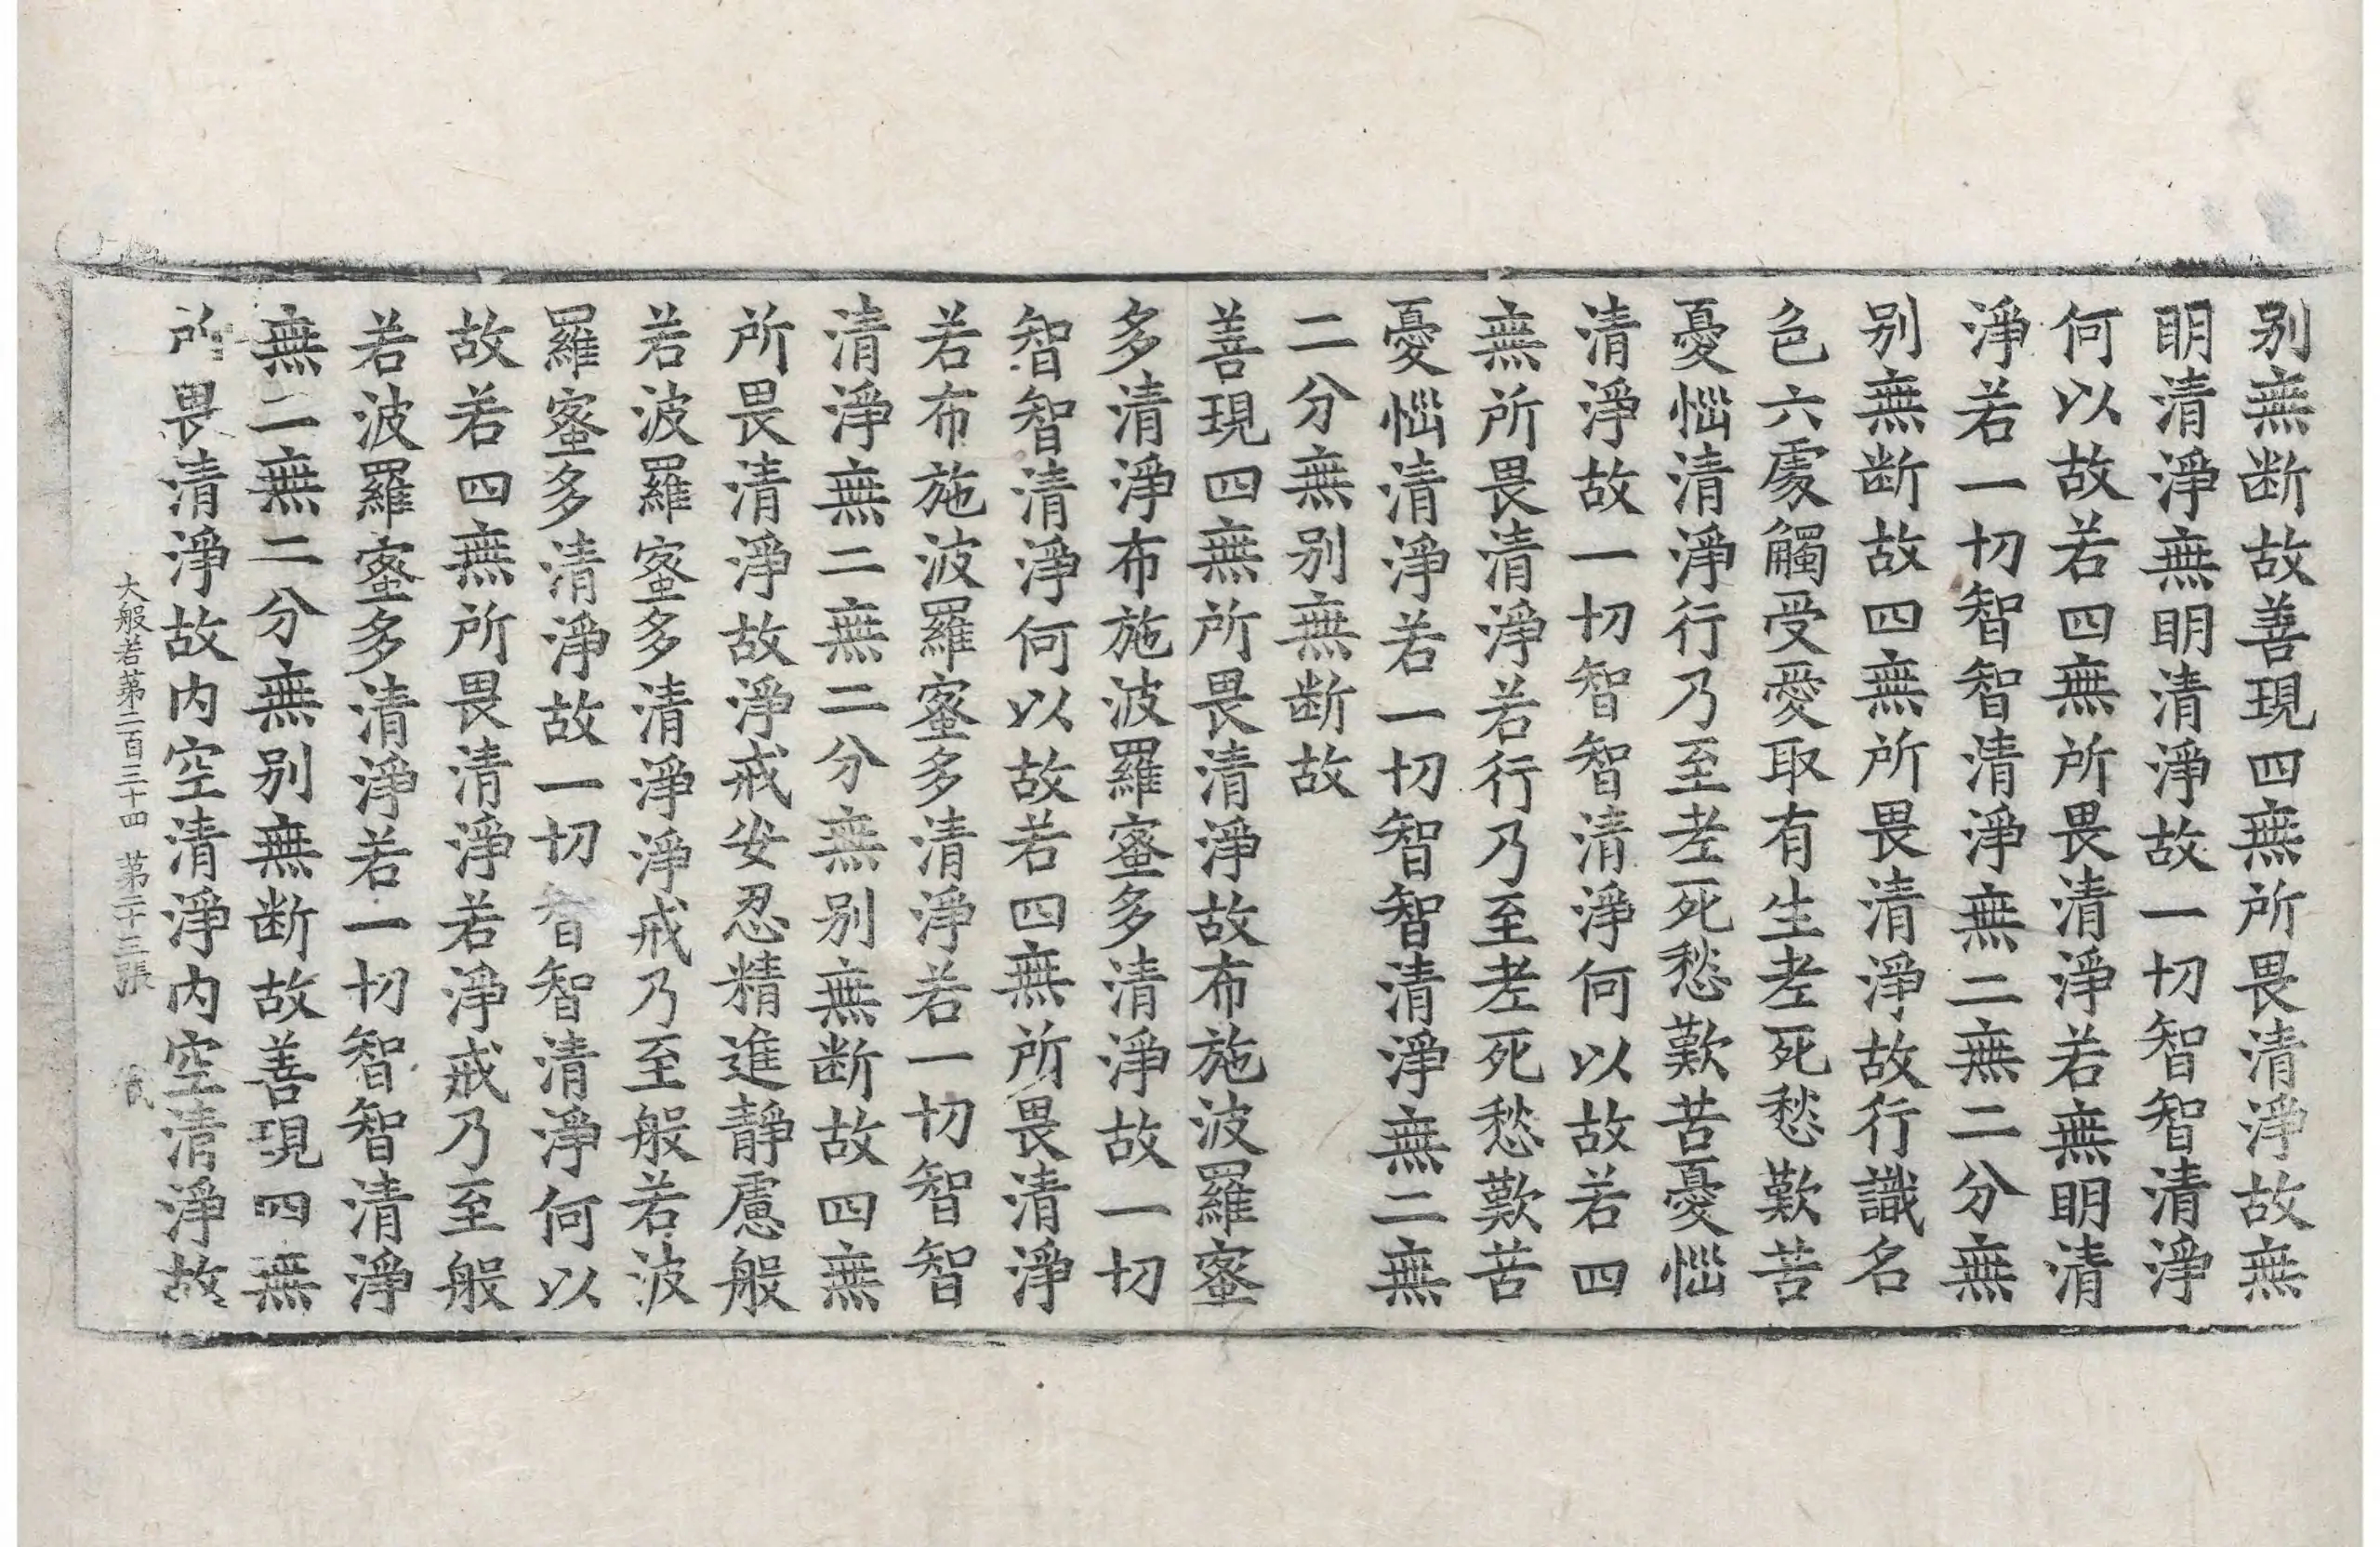 别無断故善現四無所畏清淨故無
明清淨無明清淨故一切智智清淨
何以故若四無所畏清淨若無明清
淨若一切智智清淨無二無二分無
别無断故四無所畏清淨故行識名
色六處觸受愛取有生老死愁歎苦
憂惱清淨行乃至老死愁歎苦憂惱
清淨故一切智智清淨何以故若四
無所畏清淨若行乃至老死愁歎苦
憂惱清淨若一切智智清淨無二無
二分無别無断故
善現四無所畏清淨故布施波羅蜜
多清淨布施波羅蜜多清淨故一切
智智清淨何以故若四無所畏清淨
若布施波羅蜜多清淨若一切智智
清淨無二無二分無别無断故四無
所畏清淨故淨戒安忍精進靜慮般
若波羅蜜多清淨淨戒乃至般若波
羅蜜多清淨故一切智智清淨何以
故若四無所畏清淨若淨戒乃至般
若波羅蜜多清淨若一切智智清淨
無二無二分無别無断故善現四無
所畏清淨故内空清淨内空清淨故
大般若第二百三十四 第二十三張